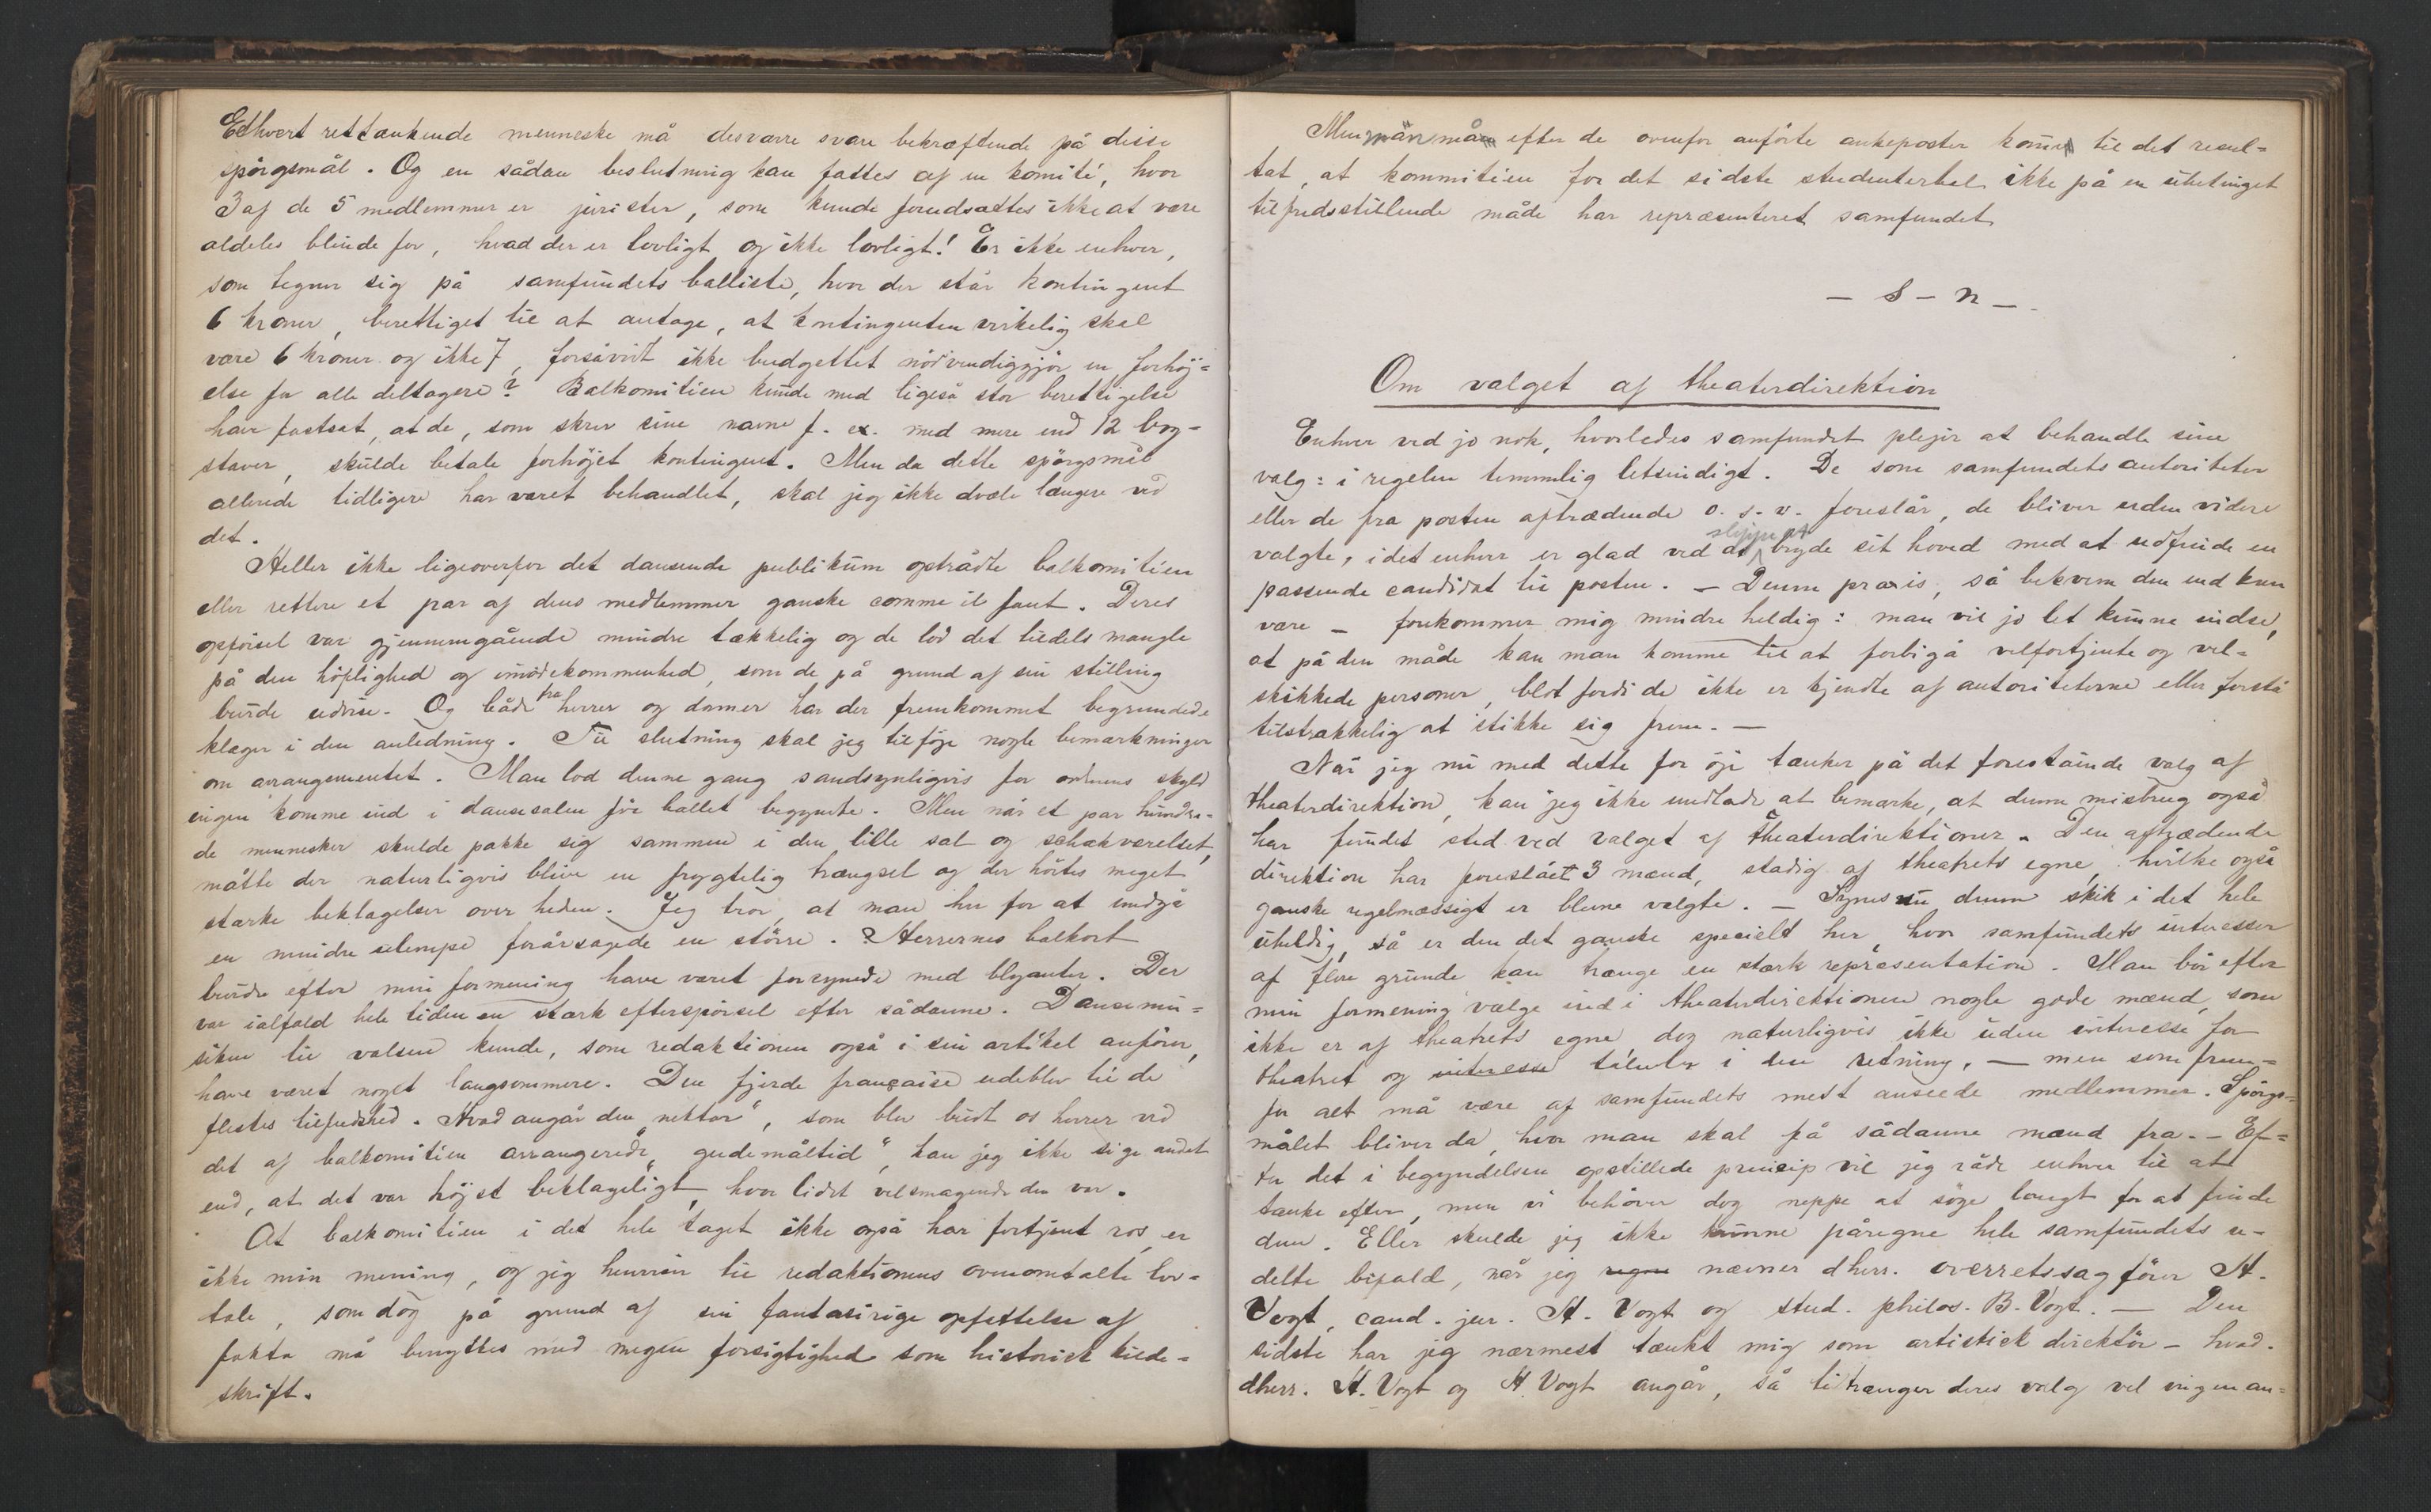 Ethvert rettænkende menneske må desværre svare bekræftende på disse
spörgsmål. Og en sådan beslutning kan fattes af en komité, hvor
3 af de 5 medlemmer er jurister, som kunde forudsættes ikke at være
aldeles blinde for, hvad der er lovligt og ikke lovligt! Er ikke enhver,
som tegner sig på samfundets balliste, hvor der står kontingent
6 kroner, berettiget til at antage, at kontingenten virkelig skal
være 6 kroner og ikke 7, forsåvidt ikke budgettet nödvendiggjör en forhöj=
else for alle deltagere? Balkomitien kunde med ligeså stor berettigelse
have fastsat, at de, som skrev sine navne f. ex. med mere end 12 bog-
staver, skulde betale forhöjet kontingent. Men da dette spörgsmål
allerede tidligere har været behandlet, skal jeg ikke dvæle længere ved
det.
Heller ikke ligeoverfor det dansende publikum optrådte balkomitien
eller rettere et par af dens medlemmer ganske comme il faut. Deres
opförsel var gjennemgående mindre tækkelig og de lod det tildels mangle
på den höflighed og imödekommenhed, som de på grund af sin stilling
burde udvise. Og både fra herrer og damer har der fremkommet begrundede
klager i den anledning. Til slutning skal jeg tilföje nogle bemærkninger
om arrangementet. Man lod denne gang sandsynligvis for ordnens skyld
ingen komme ind i dansesalen för ballet begyndte. Men når et par hundre-
de mennesker skulde pakke sig sammen i den lille sal og schakværelset,
måtte der naturligvis blive en frygtelig trængsel og der hörtes meget
stærke beklagelser over heden. Jeg tror, at man her for at undgå
en mindre ulempe forårsagede en större. Herrernes balkort
burde efter min formening have været forsynede med blyanter. Der
var ialfald hele tiden en stærk efterspörsel efter sådanne. Dansemu=
siken til valsene kunde, som redaktionen også i sin artikel anförer,
have været noget langsommere. Den fjerde française udeblev til de
flestes tilfredshed. Hvad angår den "nektar", som blev budt os herrer ved
det af balkomitien arrangerede "gudemåltid", kan jeg ikke sige andet
end, at det var höjst beklageligt, hvor lidet velsmagende den var.
At balkomitien i det hele taget ikke også har fortjent ros, er
ikke min mening, og jeg henviser til redaktionens ovenomtalte lov=
tale, som dog på grund af sin fantasirige opfattelse af
fakta må benyttes med megen forsigtighed som historisk kilde=
skrift.
Men man må efter de ovenfor anförte ankeposter komme til det resul=
tat, at kommitien for det sidste studenterbal ikke på en ubetinget
tilfredsstillende måde har repræsenteret samfundet
— s — n —
Om valget af theaterdirektion
Enhver ved jo nok, hvorledes samfundet plejer at behandle sine
valg: i regelen temmelig letsindigt. De som samfundets autoriteter
eller de fra posten aftrædende o. s. v. foreslår, de bliver uden videre
valgte, idet enhver er glad ved at slippe at bryde sit hoved med at udfinde en
passende candidat til posten. — Denne praxis, så bekvem den end kan
være — forekommer mig mindre heldig: man vil jo let kunne indse,
at på den måde kan man komme til at forbigå velfortjente og vel=
skikkede personer, blot fordi de ikke er kjendte af autoriteterne eller forstå
tilstrækkelig at stikke sig frem. —
Når jeg nu med dette for öje tænker på det forestående valg af
theaterdirektion, kan jeg ikke undlade at bemærke, at denne misbrug også
har fundet sted ved valget af theaterdirektioner. Den aftrædende
direktion har foreslået 3 mænd, stadig af theatrets egne, hvilke også
ganske regelmæssigt er blevne valgte. — Synes nu denne skik i det hele
uheldig, så er den det ganske specielt her, hvor samfundets interesser
af flere grunde kan trænge en stærk repræsentation. Man bör efter
min formening vælge ind i theaterdirektionen nogle gode mænd, som
ikke er af theatrets egne, dog naturligvis ikke uden interesse for
theatret og interesse talenter i den retning, — men som frem=
for alt må være af samfundets mest ansede medlemmer. Spörgs=
målet bliver da, hvor man skal få sådanne mænd fra. — Ef=
ter det i begyndelsen opstillede princip vil jeg råde enhver til at
tænke efter, men vi behöver dog neppe at söge langt for at finde
dem. Eller skulde jeg ikke kunne påregne hele samfundets u-
delte bifald, når jeg regne nævner dherr. overretssagförer H.
Vogt, cand. jur. H. Vogt og stud. philos. B. Vogt. — Den
sidste har jeg nærmest tænkt mig som artistisk direktör — hvad
dherr. H. Vogt og H. Vogt angår, så titrænger deres valg vel ingen an=